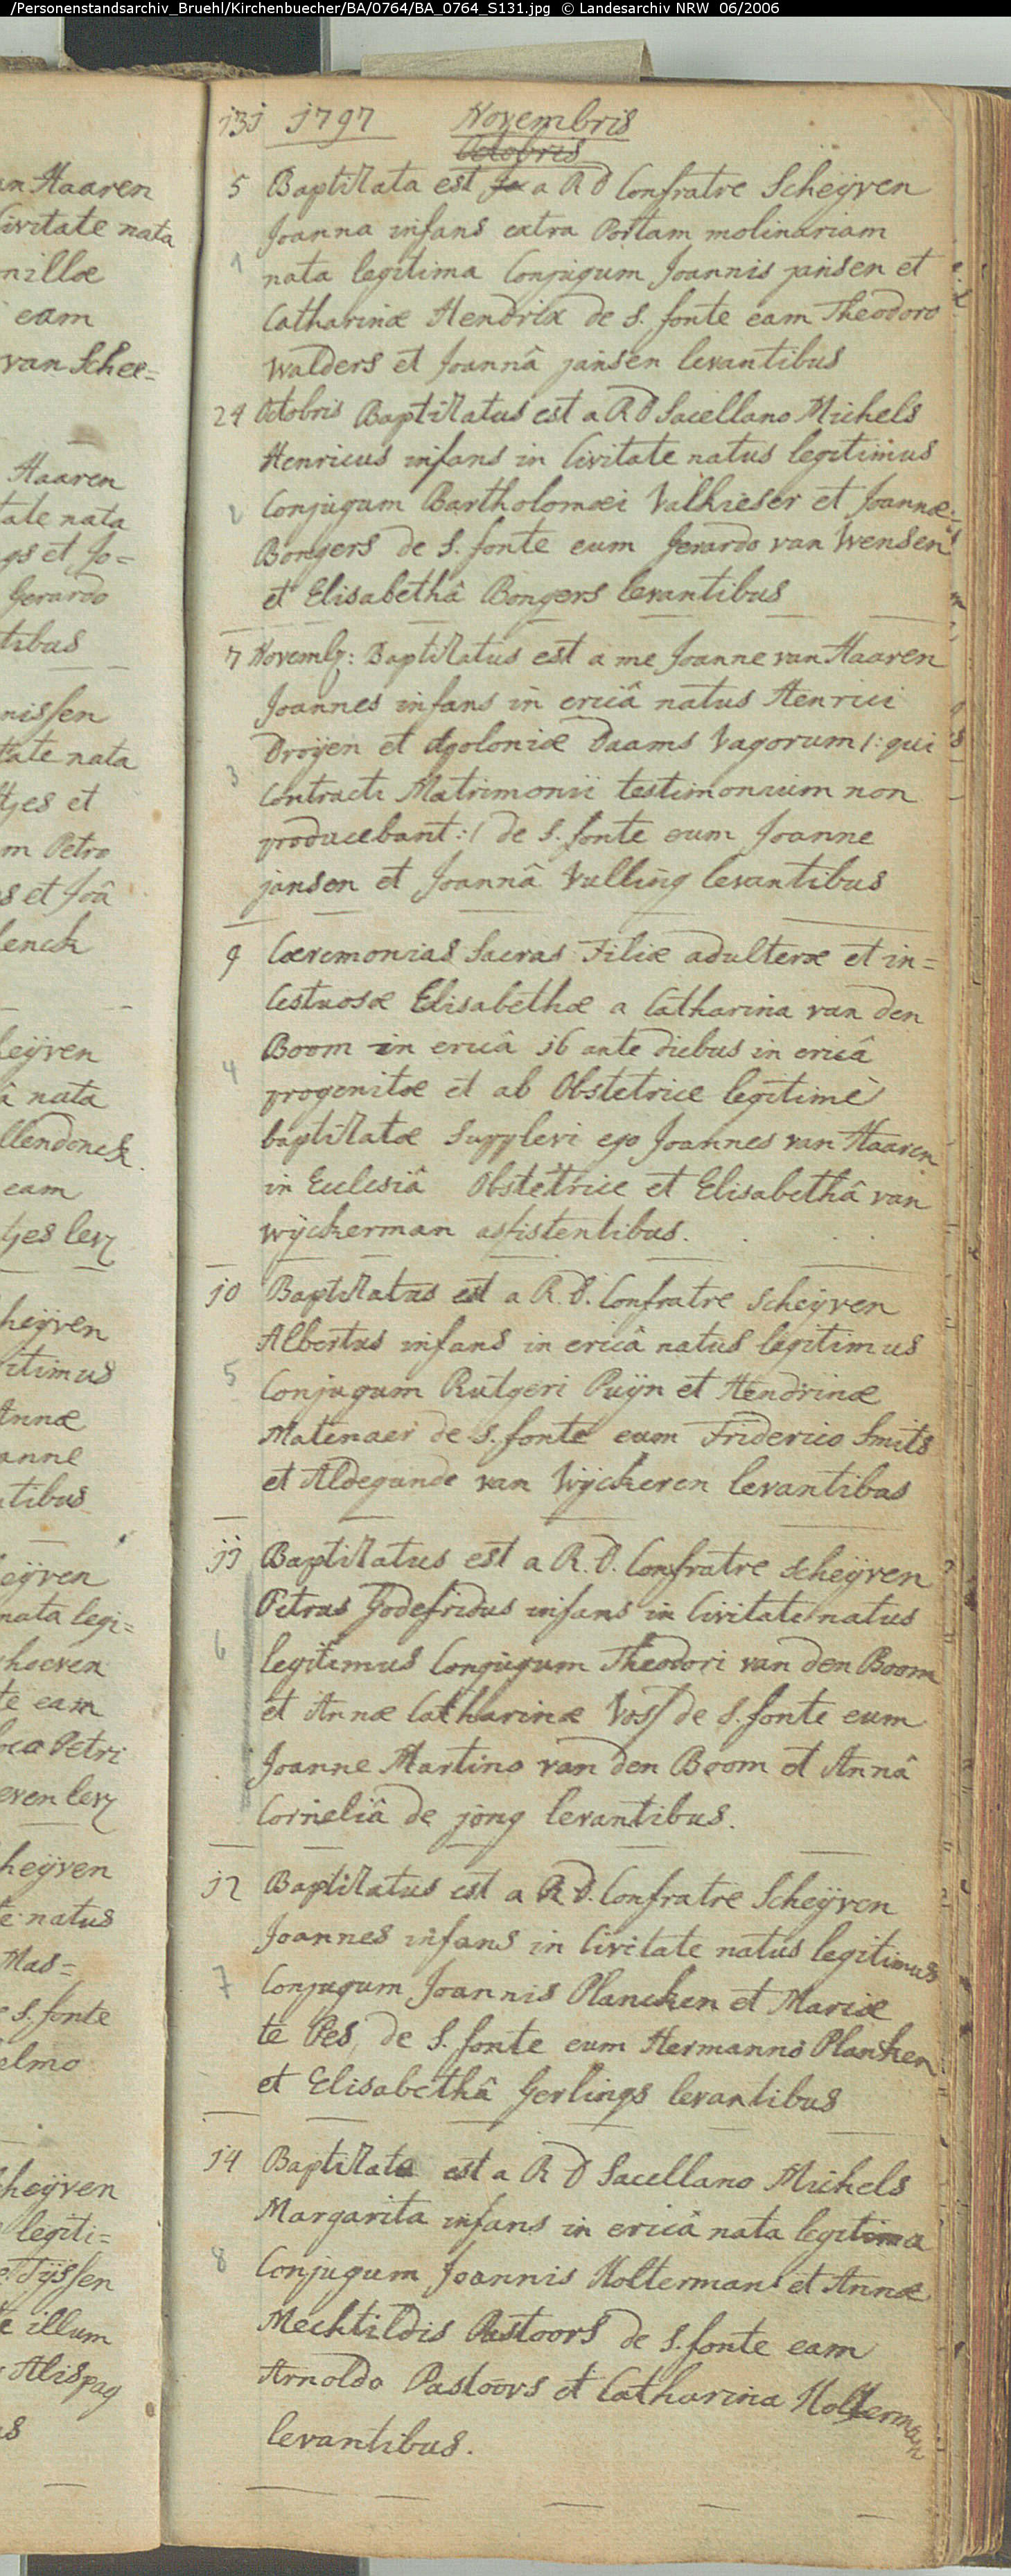 /Personenstandsarchiv_Bruehl/Kirchenbuecher/BA/0764/BA_0764_S131.jpg © Landesarchiv NRW 06/2006
an Haaren
Civitate nata
nillæ
eam
van Schee=
Haaren
tate nata
gs et Jo=
Gerardo
tibus
nissen
tate nata
tjes et
m Petro
s et Joâ
lenck
heÿven
â nata
llendonck.
eam
tjes lev
heÿven
itimus
Annæ
anne
ntibus
eÿven
nata legi=
hoeven
te eam
oca Petri
even lev
heÿven
te natus
Mas=
e S. fonte
elmo
heÿven
legiti=
Tÿssen
te illum
Alispag
s
131 1797 Novembris
Octobris
5 Baptisata est Jo a R D Confratre Scheÿven
Joanna infans extra Portam molinariam
1 nata legitima Conjugum Joannis jansen et
Catharinæ Hendrix de S. fonte eam Theodoro
Walders et Joannâ jansen levantibus
24 Octobris Baptisatus est a R D Sacellano Michels
Henricus infans in Civitate natus legitimus
2 Conjugum Bartholomæi Valkieser et Joannæ
Bongers de S. fonte eum Gerardo van Wensen
et Elisabethâ Bongers levantibus
7 Novemb: Baptisatus est a me Joanne van Haaren
Joannes infans in ericâ natus Henrici
Droÿen et Apoloniæ Daams Vagorum /: qui
3 Contracti Matrimonii testimonium non
producebant :/ de S. fonte eum Joanne
jansen et Joannâ Vulling levantibus
9 Cæremonias Sacras Filiæ adulteræ et in=
Cestuosæ Elisabethæ a Catharina van den
Boom in ericâ 16 ante diebus in ericâ
4 progenitæ et ab Obstetrice legitimè
baptisatæ Supplevi ego Joannes van Haaren
in Ecclesiâ Obstetrice et Elisabethâ van
wÿckerman assistentibus.
10 Baptisatus est a R. D. Confratre Scheÿven
Albertus infans in ericâ natus legitimus
5 Conjugum Rutgeri Puÿn et Hendrinæ
Matenaer de S. fonte eum Friderico Smits
et Aldegunde van Wÿckeren levantibus
11 Baptisatus est a R. D. Confratre Scheÿven
Petrus Godefridus infans in Civitate natus
6 legitimus Conjugum Theodori van den Boom
et Annæ Catharinæ Voss de S. fonte eum
Joanne Martino van den Boom et Annâ
Corneliâ de jong levantibus.
12 Baptisatus est a R D. Confratre Scheÿven
Joannes infans in Civitate natus legitimus
7 Conjugum Joannis Plancken et Mariæ
te Pes, de S. fonte eum Hermanno Planken
et Elisabethâ Gerlings levantibus
14 Baptisata est a R D Sacellano Michels
Margarita infans in ericâ nata legitima
8 Conjugum Joannis Holterman et Annæ
Mechtildis Pastoors de S. fonte eam
Arnoldo Pastoors et Catharina Holterman
levantibus.